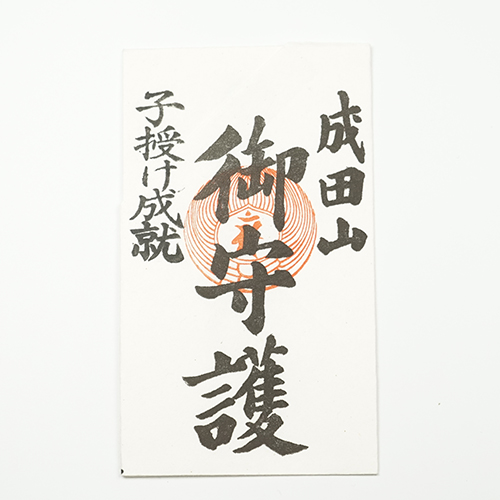 成田山
御守護
子授け成就